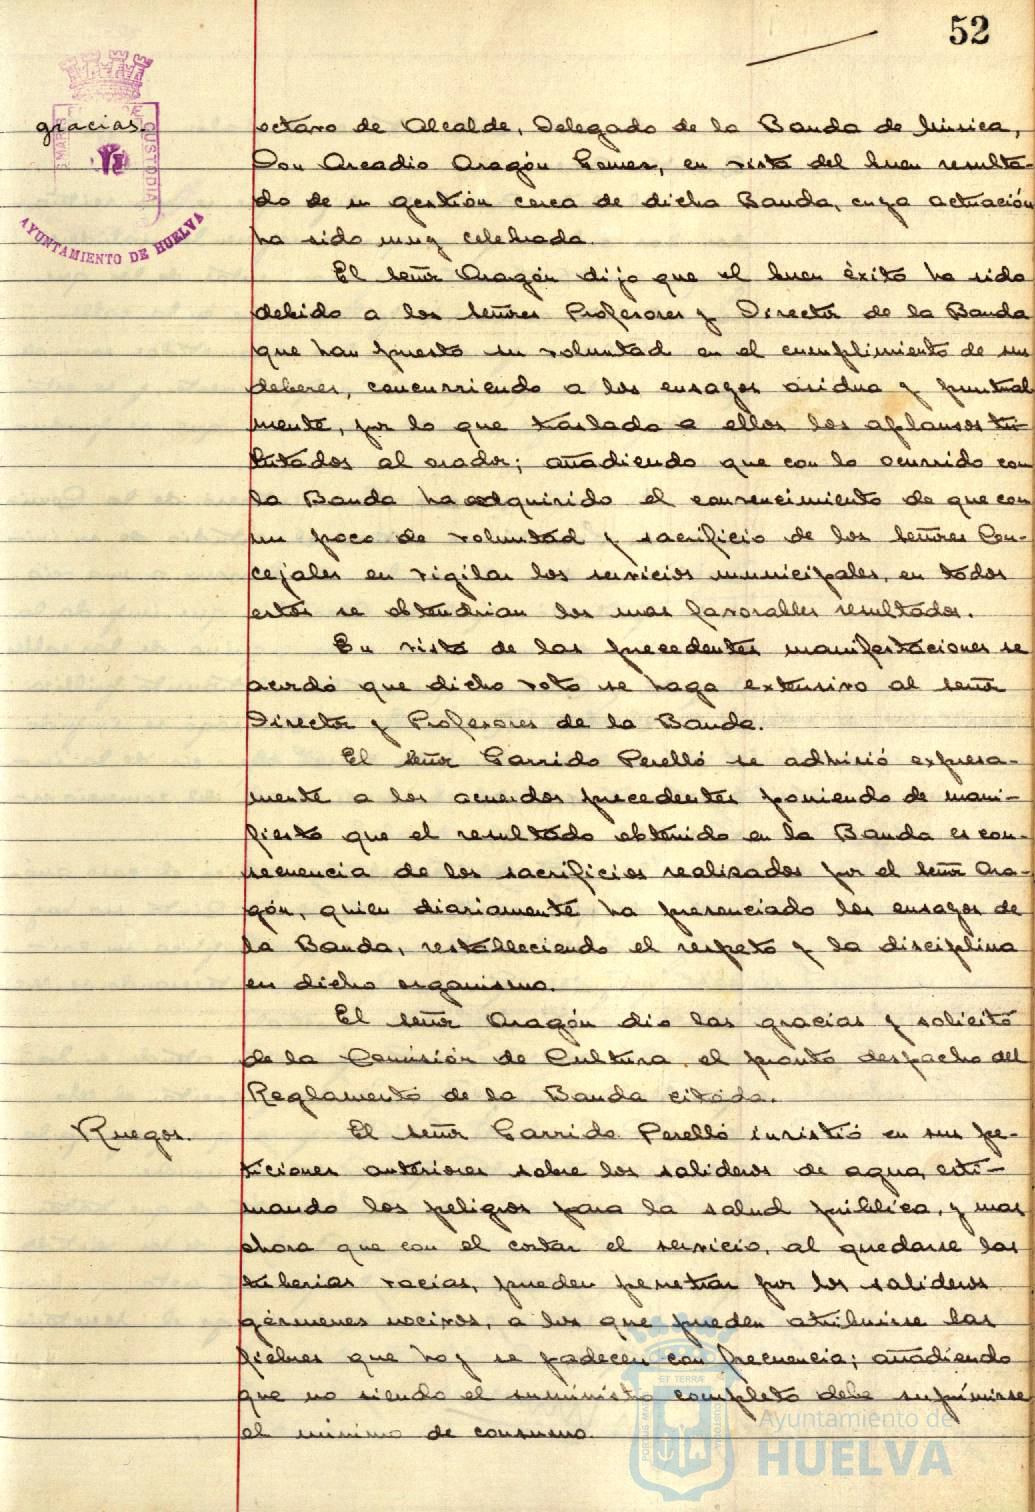 52
gracias.
AYUNTAMIENTO DE HUELVA
octavo de Alcalde, Delegado de la Banda de Música,
Don Arcadio Aragón Gomez, en vista del buen resulta-
do de su gestión cerca de dicha Banda, cuya actuación
ha sido muy celebrada.
El señor Aragón dijo que el buen éxito ha sido
debido a los señores Profesores y Director de la Banda
que han puesto su voluntad en el cumplimiento de sus
deberes, concurriendo a los ensayos asidua y puntual
mente, por lo que traslada a ellos los aplausos tri-
butados al orador; añadiendo que con lo ocurrido con
la Banda ha adquirido el convencimiento de que con
un poco de voluntad y sacrificio de los señores Con-
cejales en vigilar los servicios municipales, en todos
estos se obtendrian los mas favorables resultados.
En vista de las precedentes manifestaciones se
acordó que dicho voto se haga extensivo al señor
Director y Profesores de la Banda.
El señor Garrido Perelló se adhirió expresa-
mente a los acuerdos precedentes poniendo de mani-
fiesto que el resultado obtenido en la Banda es con-
secuencia de los sacrificios realizados por el señor Ara-
gón, quien diariamente ha presenciado los ensayos de
la Banda, restableciendo el respeto y la disciplina
en dicho organismo.
El señor Aragón dio las gracias y solicitó
de la Comisión de Cultura el pronto despacho del
Reglamento de la Banda citada.
Ruegos.
El señor Garrido Perelló insistió en sus pe-
ticiones anteriores sobre los salideros de agua, esti-
mando los peligros para la salud pública, y mas
ahora que con el cortar el servicio, al quedarse las
tuberias vacias, pueden penetrar por los salideros
gérmenes nocivos, a los que pueden atribuirse las
fiebres que hoy se padecen con frecuencia; añadiendo
que no siendo el suministro completo debe suprimirse
el minimo de consumo.
Ayuntamiento de
HUELVA